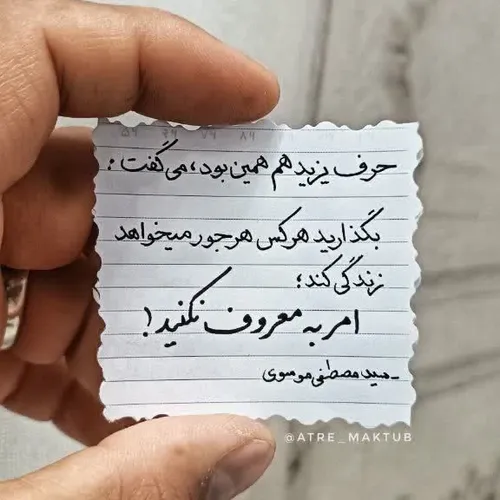 حرف یزید هم همین بود، می گفت :
بگذارید هرکس هرجور میخواهد
زندگی کند؛
امر به معروف نکنید!
ـ سید مصطفی موسوی
@ATRE_MAKTUB